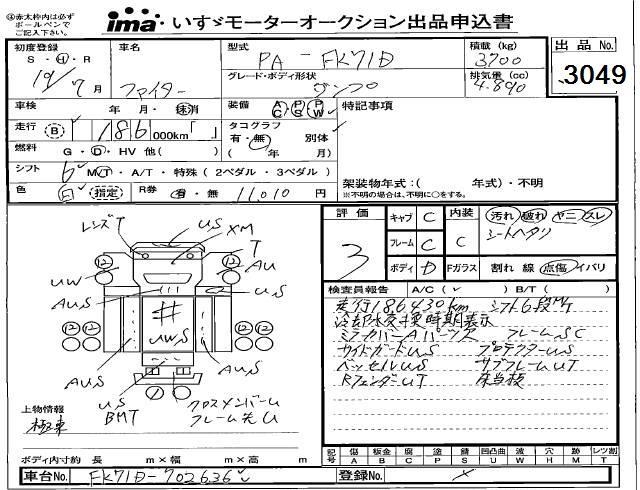 ④赤太枠内は必ずボールペンでご記入下さい。
ima いすゞモーターオークション出品申込書
初度登録 S・H・R
19/7月
車名 ファイター
型式 PA-FK71D
積載(kg) 3700
出品 No.
3049
グレード・ボディ形状 ダンプ
排気量(cc) 4.890
車検 年・月・抹消
装備 AC PS PW
特記事項
走行 B 186 000km「 」
タコグラフ 有・無 別体
( 年 月)
燃料 G・D・HV 他( )
シフト 6 M/T・A/T・特殊(2ペダル・3ペダル)
架装物年式:( 年式)・不明
※不明の場合は、不明に○をする。
色 白 指定
R券 有・無 11,010 円
評価 3
キャブ C
フレーム C
ボディ D
内装 C
汚れ 破れ ヤニ スレ
シートヘタリ
Fガラス 割れ 線 点傷 イバリ
検査員報告 A/C( ✓ ) B/T( )
走行186430km シフト6段M/T
冷却水交換時期表示
ミラーカバーAパーツ欠 フレームSC
サイドガードUS プロテクターUS
ベッセルUS サブフレームUT
RフェンダーUT 床当板
レンズT
US
XM
T
AU
UW
AUS
US
UWS
AUS
AUS
US
BMT
クロスメンバーU
フレーム先U
12
12
12
12
12
12
上物情報
極東
ボディ内寸約 長 m×幅 m×高 m
記号 傷 板金 腐 塗 錆 凹凸曲 波 穴 跡 レツ割
A B C P S U W H M T
車台No. FK71D-702636
登録No.